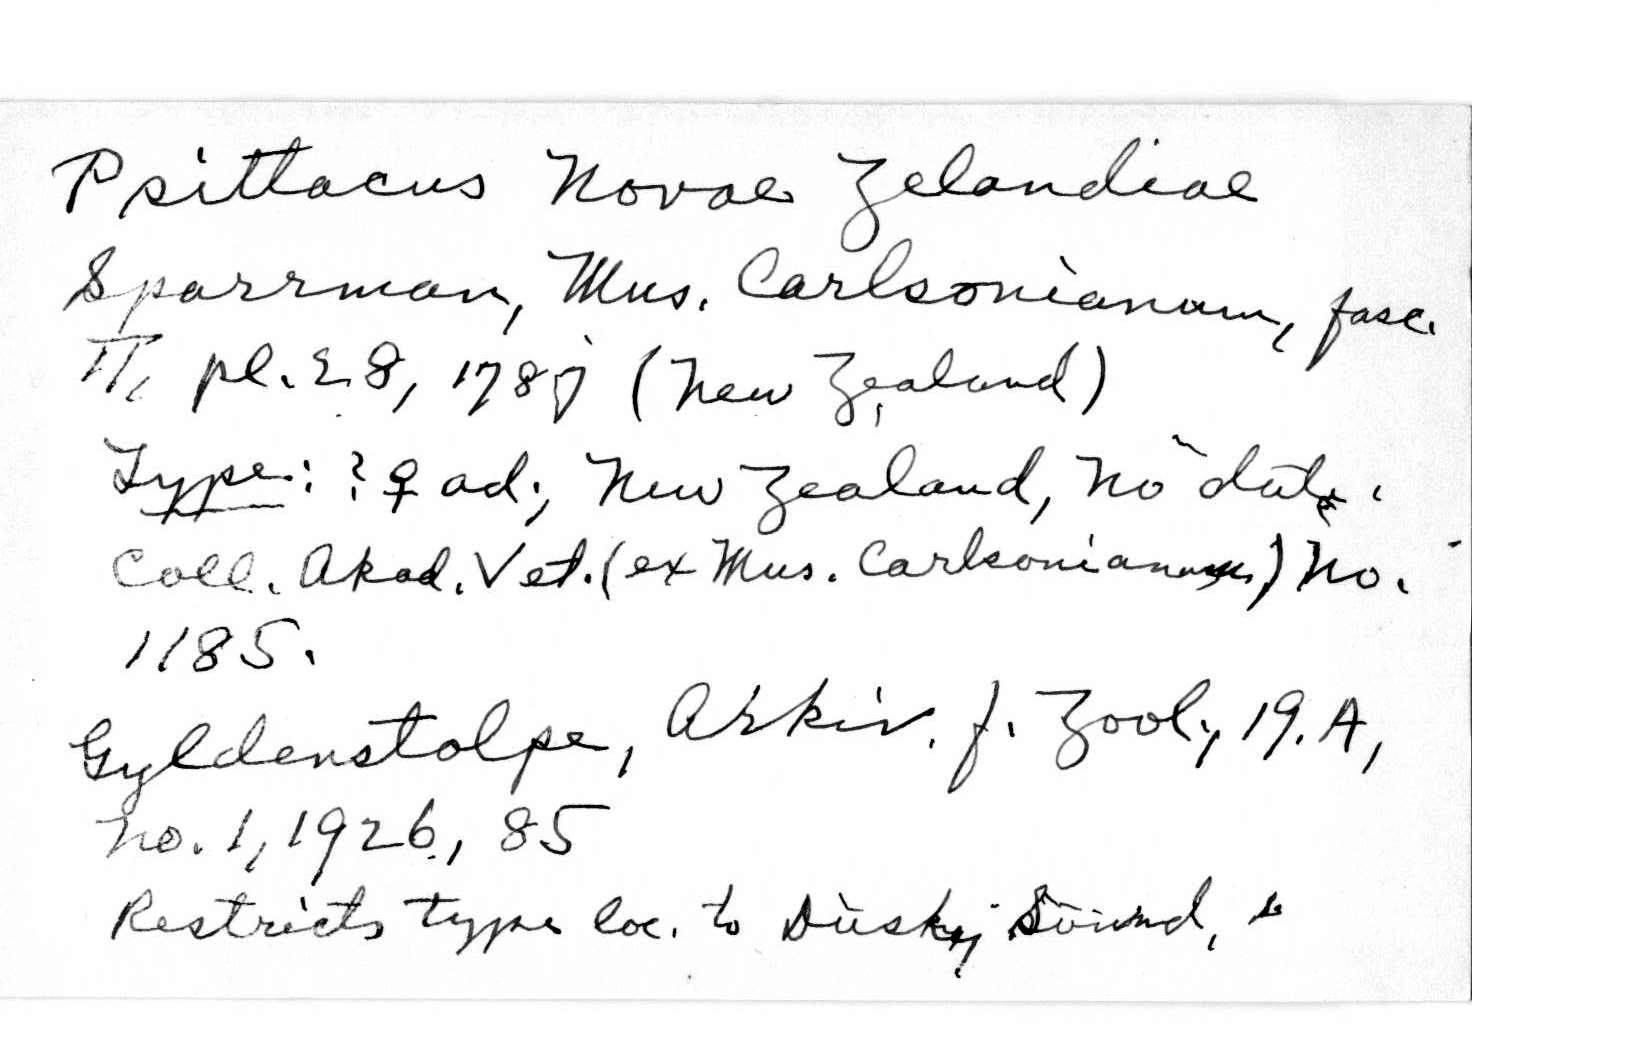 Psittacus Novae Zelandiae
Sparrman, Mus. Carlsonianum, fasc.
II, pl. 28, 1787 (New Zealand)
Type: ? ♀ ad; New Zealand, no date.
Coll. Akad. Vet. (ex Mus. Carlsonianum) No.
1185.
Gyldenstolpe, Arkiv. f. Zool., 19.A,
no. 1, 1926, 85
Restricts type loc. to Dusky Sound,